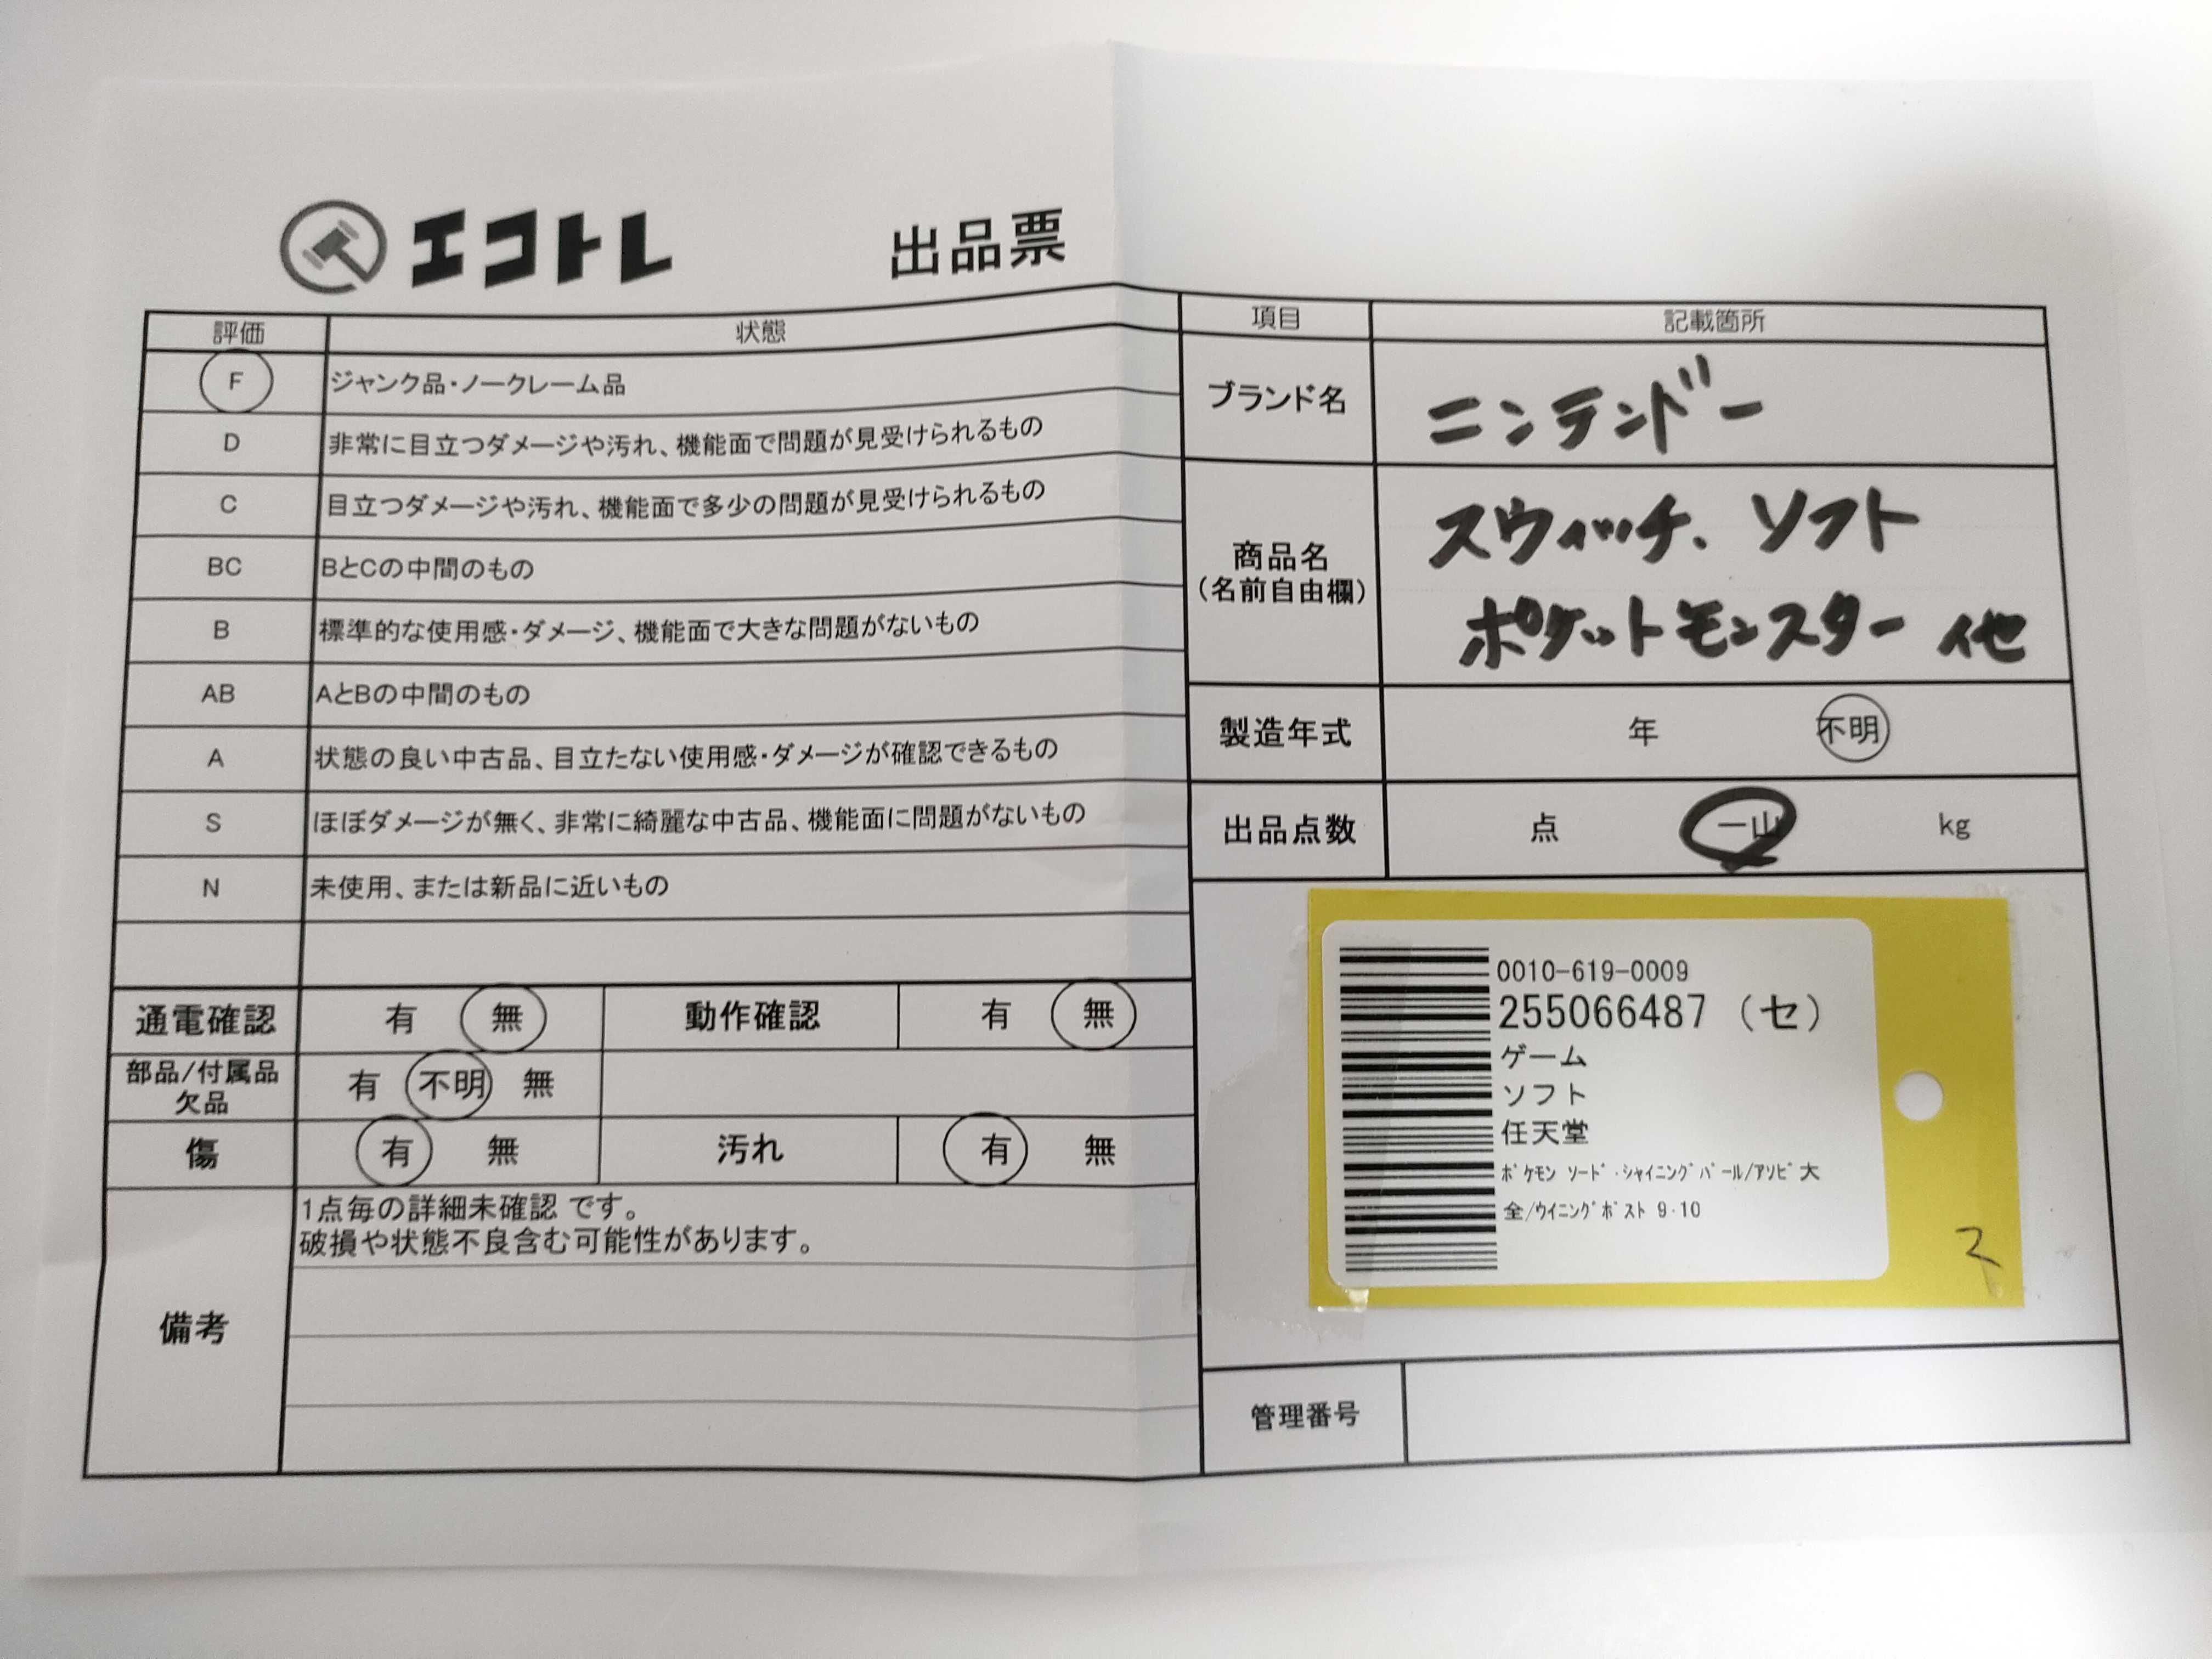 エコトレ 出品票
評価 状態
F ジャンク品・ノークレーム品
D 非常に目立つダメージや汚れ、機能面で問題が見受けられるもの
C 目立つダメージや汚れ、機能面で多少の問題が見受けられるもの
BC BとCの中間のもの
B 標準的な使用感・ダメージ、機能面で大きな問題がないもの
AB AとBの中間のもの
A 状態の良い中古品、目立たない使用感・ダメージが確認できるもの
S ほぼダメージが無く、非常に綺麗な中古品、機能面に問題がないもの
N 未使用、または新品に近いもの
通電確認 有 無 動作確認 有 無
部品/付属品
欠品 有 不明 無
傷 有 無 汚れ 有 無
備考
1点毎の詳細未確認 です。
破損や状態不良含む可能性があります。
項目 記載箇所
ブランド名 ニンテンドー
商品名
(名前自由欄)
スウィッチ、ソフト
ポケットモンスター 他
製造年式 年 不明
出品点数 点 一山 kg
0010-619-0009
255066487 (セ)
ゲーム
ソフト
任天堂
ﾎﾟｹﾓﾝ ｿｰﾄﾞ・ｼｬｲﾆﾝｸﾞﾊﾟｰﾙ/ｱｿﾋﾞ大
全/ｳｲﾆﾝｸﾞﾎﾟｽﾄ 9・10
管理番号